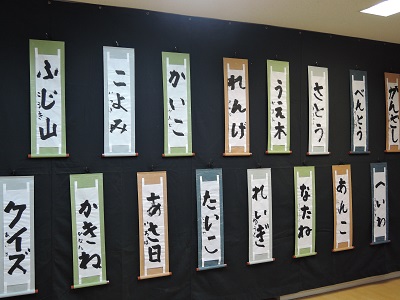 ふじ山
こよみ
かいこ
れんげ
うえ木
さとう
べんとう
かんざし
クイズ
かきね
あさ日
たいこ
れいぎ
なたね
あんこ
へいわ